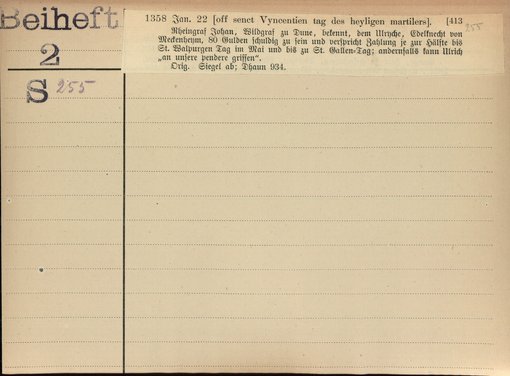 Beiheft
2
S 255
1358 Jan. 22 [off senct Vyncentien tag des heyligen martilers]. [413
255
Rheingraf Johan, Wildgraf zu Dune, bekennt, dem Ulryche, Edelknecht von
Meckenheym, 80 Gulden schuldig zu sein und verspricht Zahlung je zur Hälfte bis
St. Walpurgen Tag im Mai und bis zu St. Gallen-Tag; andernfalls kann Ulrich
„an unsere pendere griffen“.
Orig. Siegel ab; Dhaun 934.